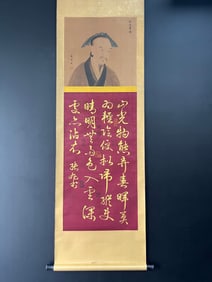 山光物態弄春暉莫
為輕陰便擬歸縱使
晴明無雨色入雲深
處亦沾衣 張旭書